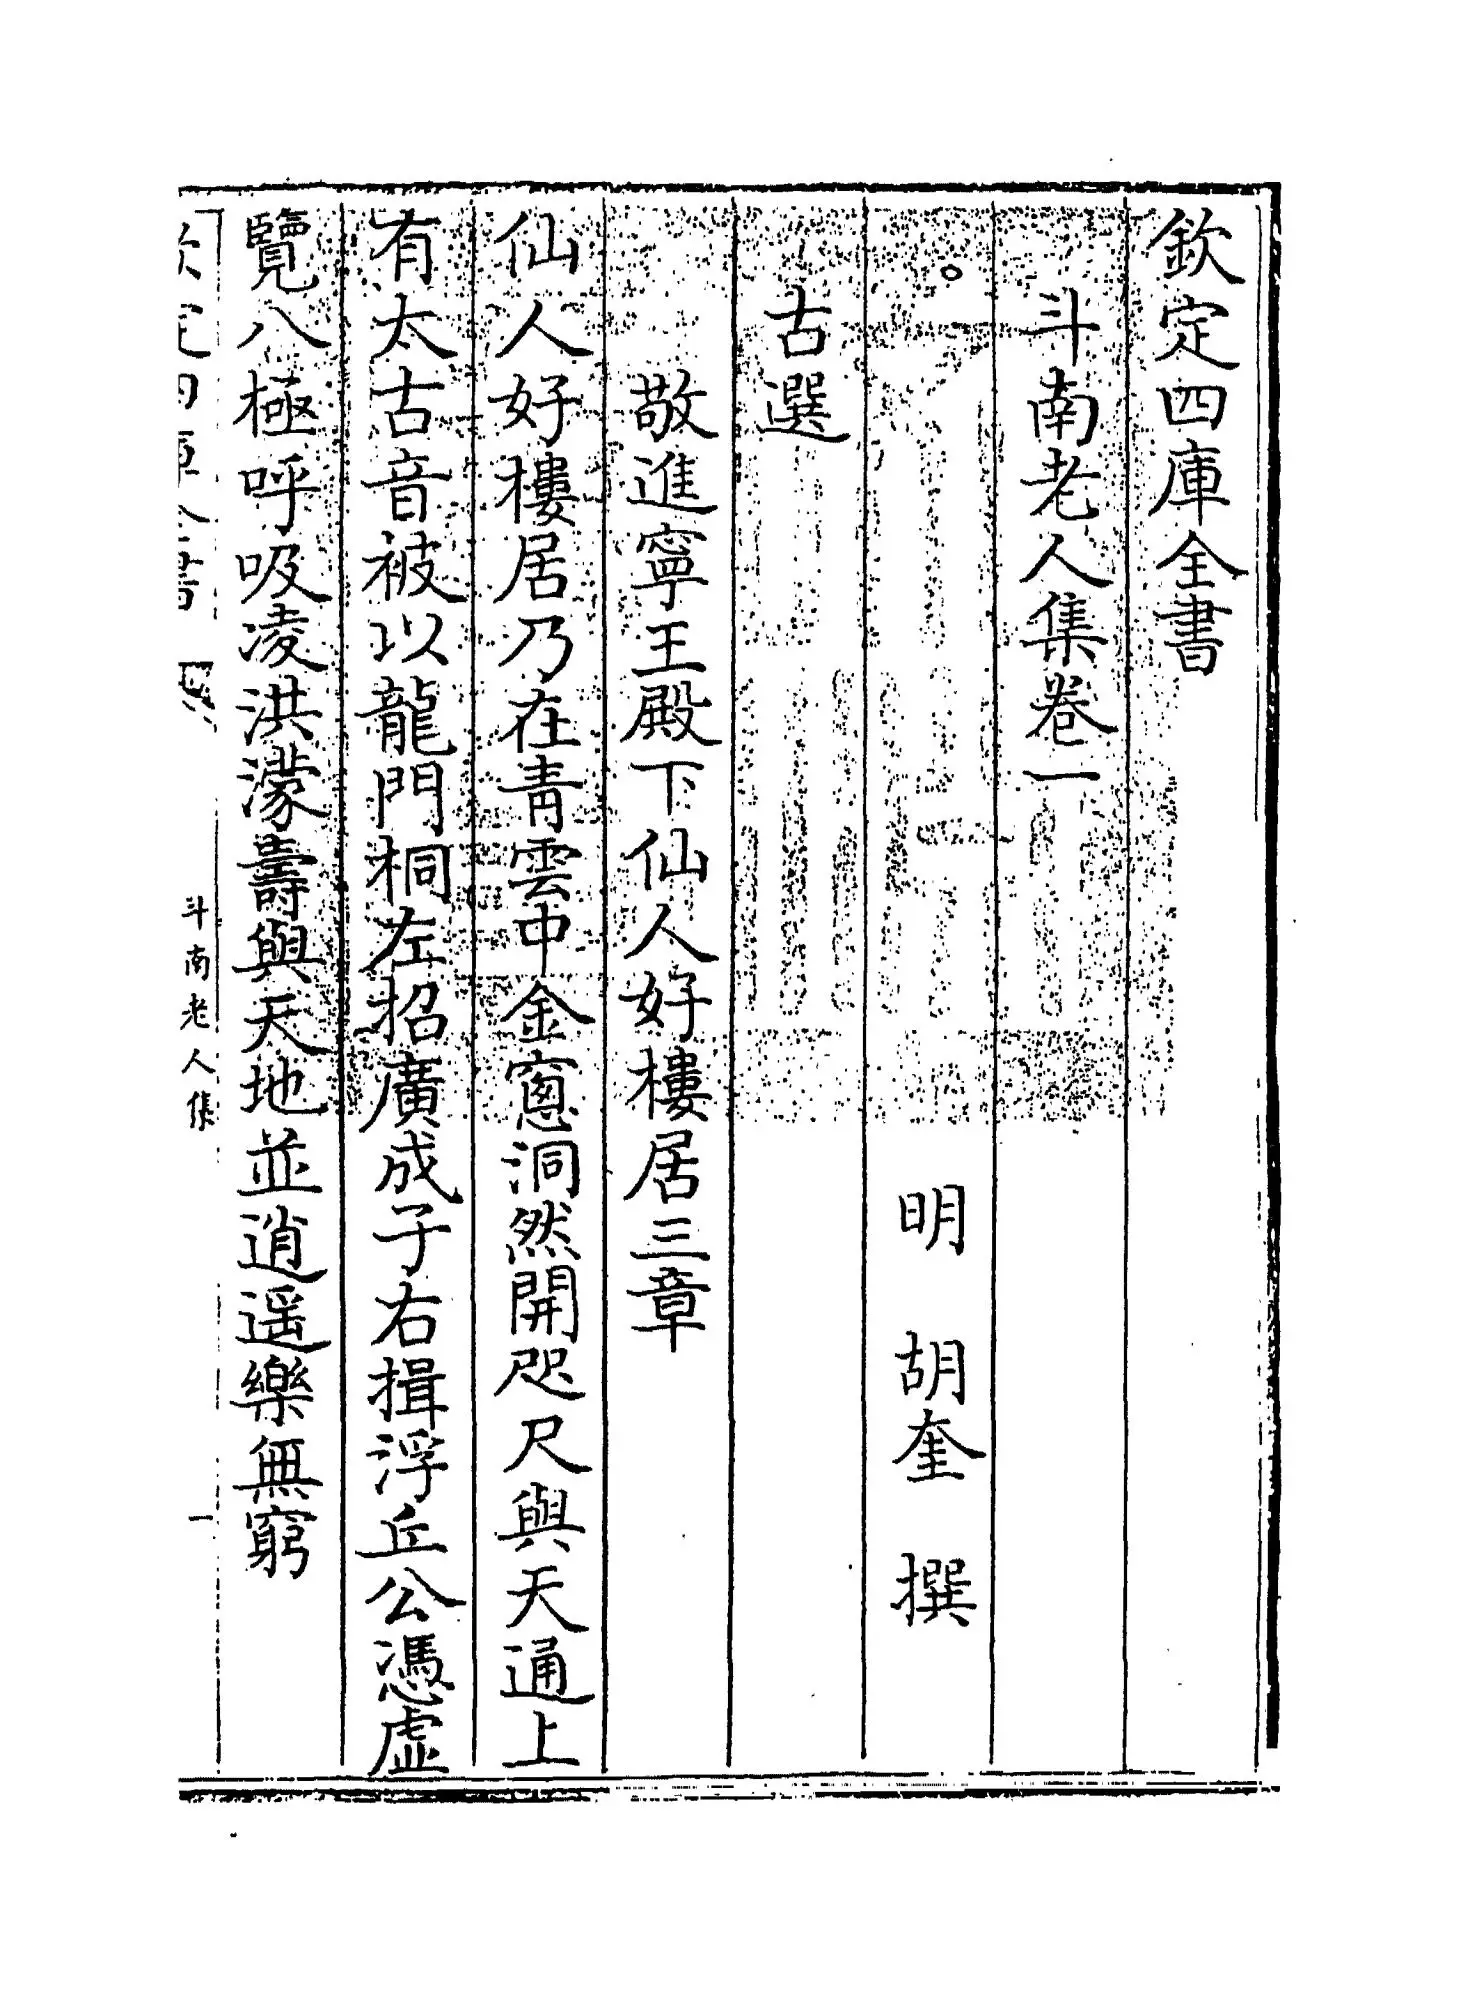 欽定四庫全書
斗南老人集卷一
明 胡奎 撰
古選
敬進寧王殿下仙人好樓居三章
仙人好樓居乃在青雲中金窻洞然開咫尺與天通上
有太古音被以龍門桐左招廣成子右揖浮丘公憑虛
覽八極呼吸凌洪濛壽與天地並逍遥樂無窮
斗南老人集
一